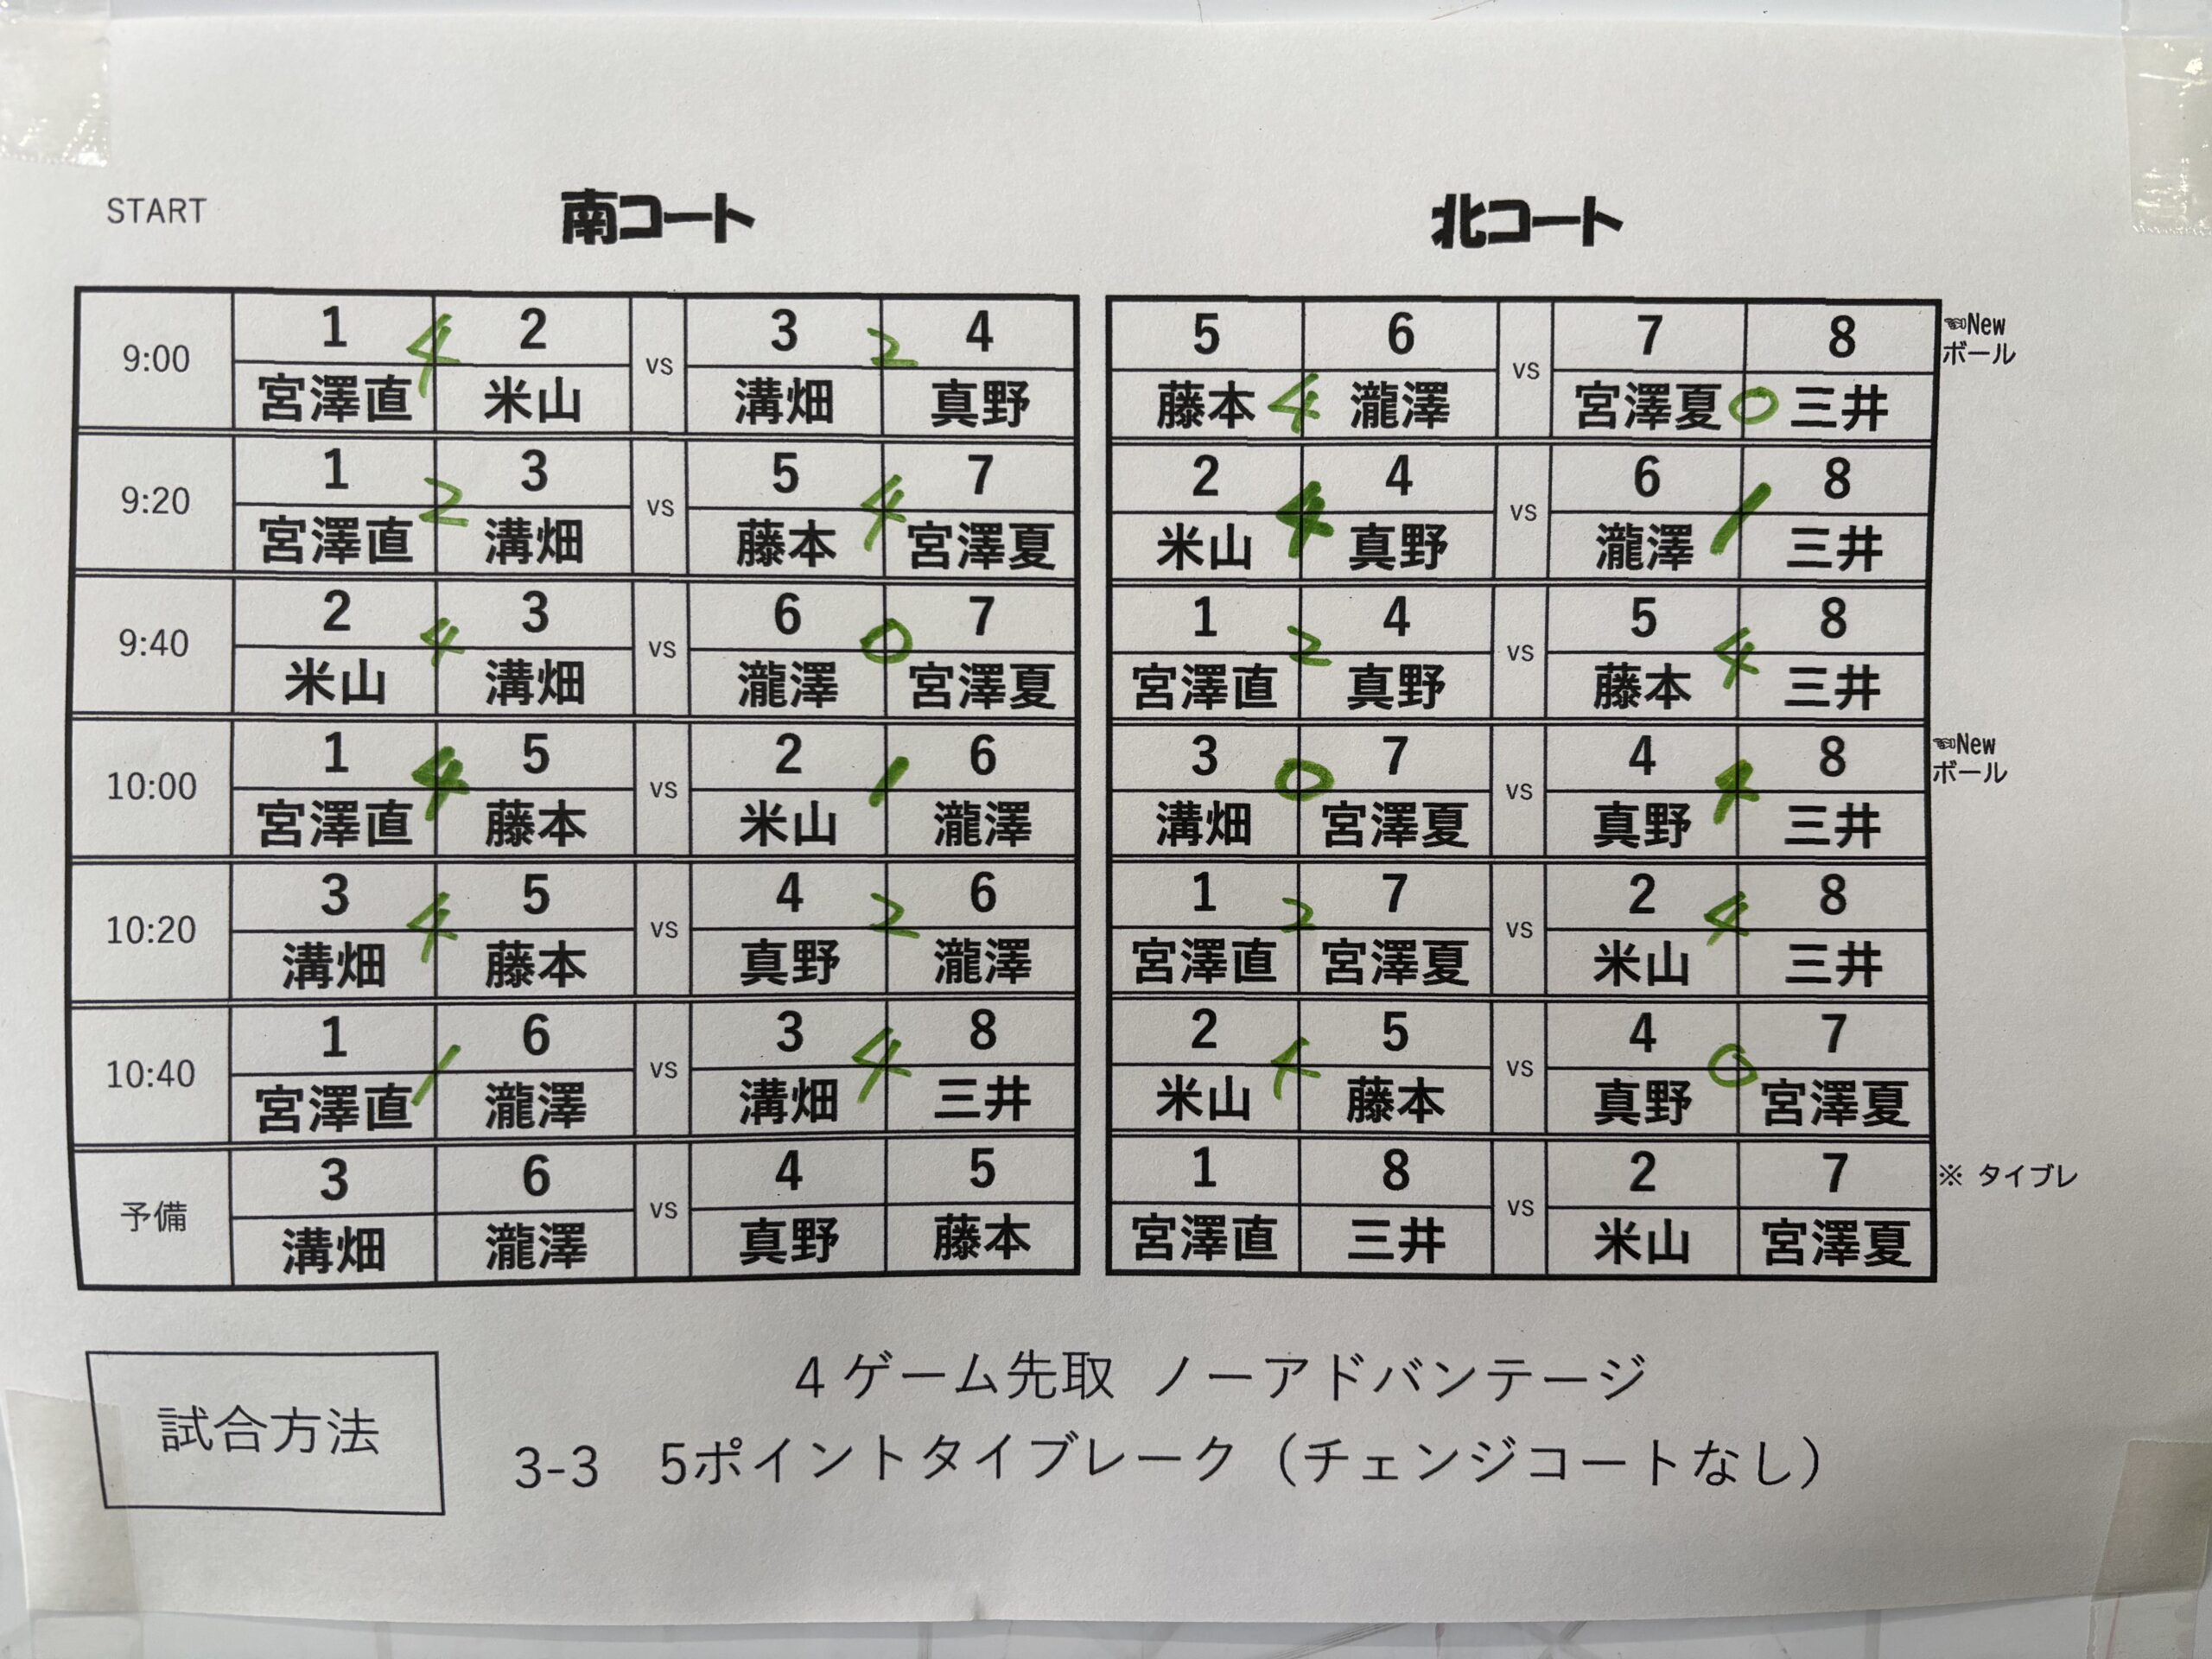 START 南コート 北コート
9:00 1 4 2 vs 3 2 4 5 6 vs 7 8 ☜New
宮澤直 米山 溝畑 真野 藤本 4 瀧澤 宮澤夏 0 三井 ボール
9:20 1 2 3 vs 5 4 7 2 4 4 vs 6 1 8
宮澤直 溝畑 藤本 宮澤夏 米山 真野 瀧澤 三井
9:40 2 4 3 vs 6 0 7 1 2 4 vs 5 4 8
米山 溝畑 瀧澤 宮澤夏 宮澤直 真野 藤本 三井
10:00 1 4 5 vs 2 1 6 3 0 7 vs 4 4 8 ☜New
宮澤直 藤本 米山 瀧澤 溝畑 宮澤夏 真野 三井 ボール
10:20 3 4 5 vs 4 2 6 1 2 7 vs 2 4 8
溝畑 藤本 真野 瀧澤 宮澤直 宮澤夏 米山 三井
10:40 1 1 6 vs 3 4 8 2 4 5 vs 4 0 7
宮澤直 瀧澤 溝畑 三井 米山 藤本 真野 宮澤夏
予備 3 6 vs 4 5 1 8 vs 2 7 ※ タイブレ
溝畑 瀧澤 真野 藤本 宮澤直 三井 米山 宮澤夏
試合方法
4 ゲーム先取 ノーアドバンテージ
3-3 5ポイントタイブレーク（チェンジコートなし）